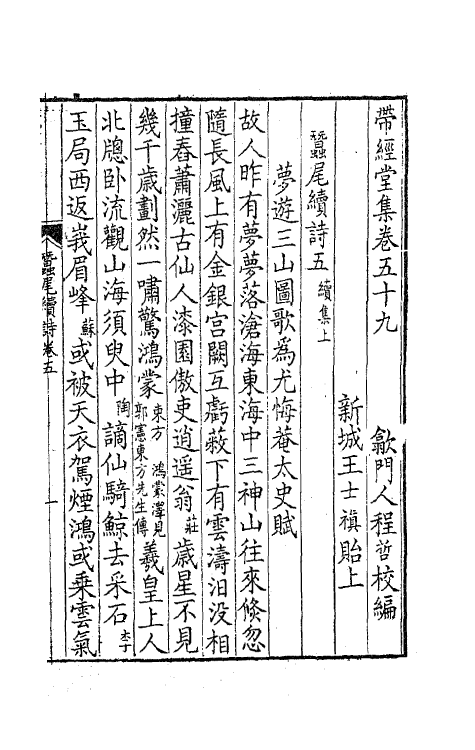 帶經堂集卷五十九　歙門人程哲校編
新城王士禛貽上
蠶尾續詩五　續集上
夢遊三山圖歌為尤悔菴太史賦
故人昨有夢夢落滄海東海中三神山往來倐忽
隨長風上有金銀宫闕互虧蔽下有雲濤汨没相
撞舂蕭灑古仙人漆園傲吏逍遥翁莊歲星不見
幾千歲劃然一嘯驚鴻蒙東方　鴻蒙澤見郭憲東方先生傳羲皇上人
北牕卧流觀山海須臾中陶謫仙騎鯨去采石李
玉局西返峩眉峰蘇或被天衣駕煙鴻或乘雲氣
蠶尾續詩卷五　一